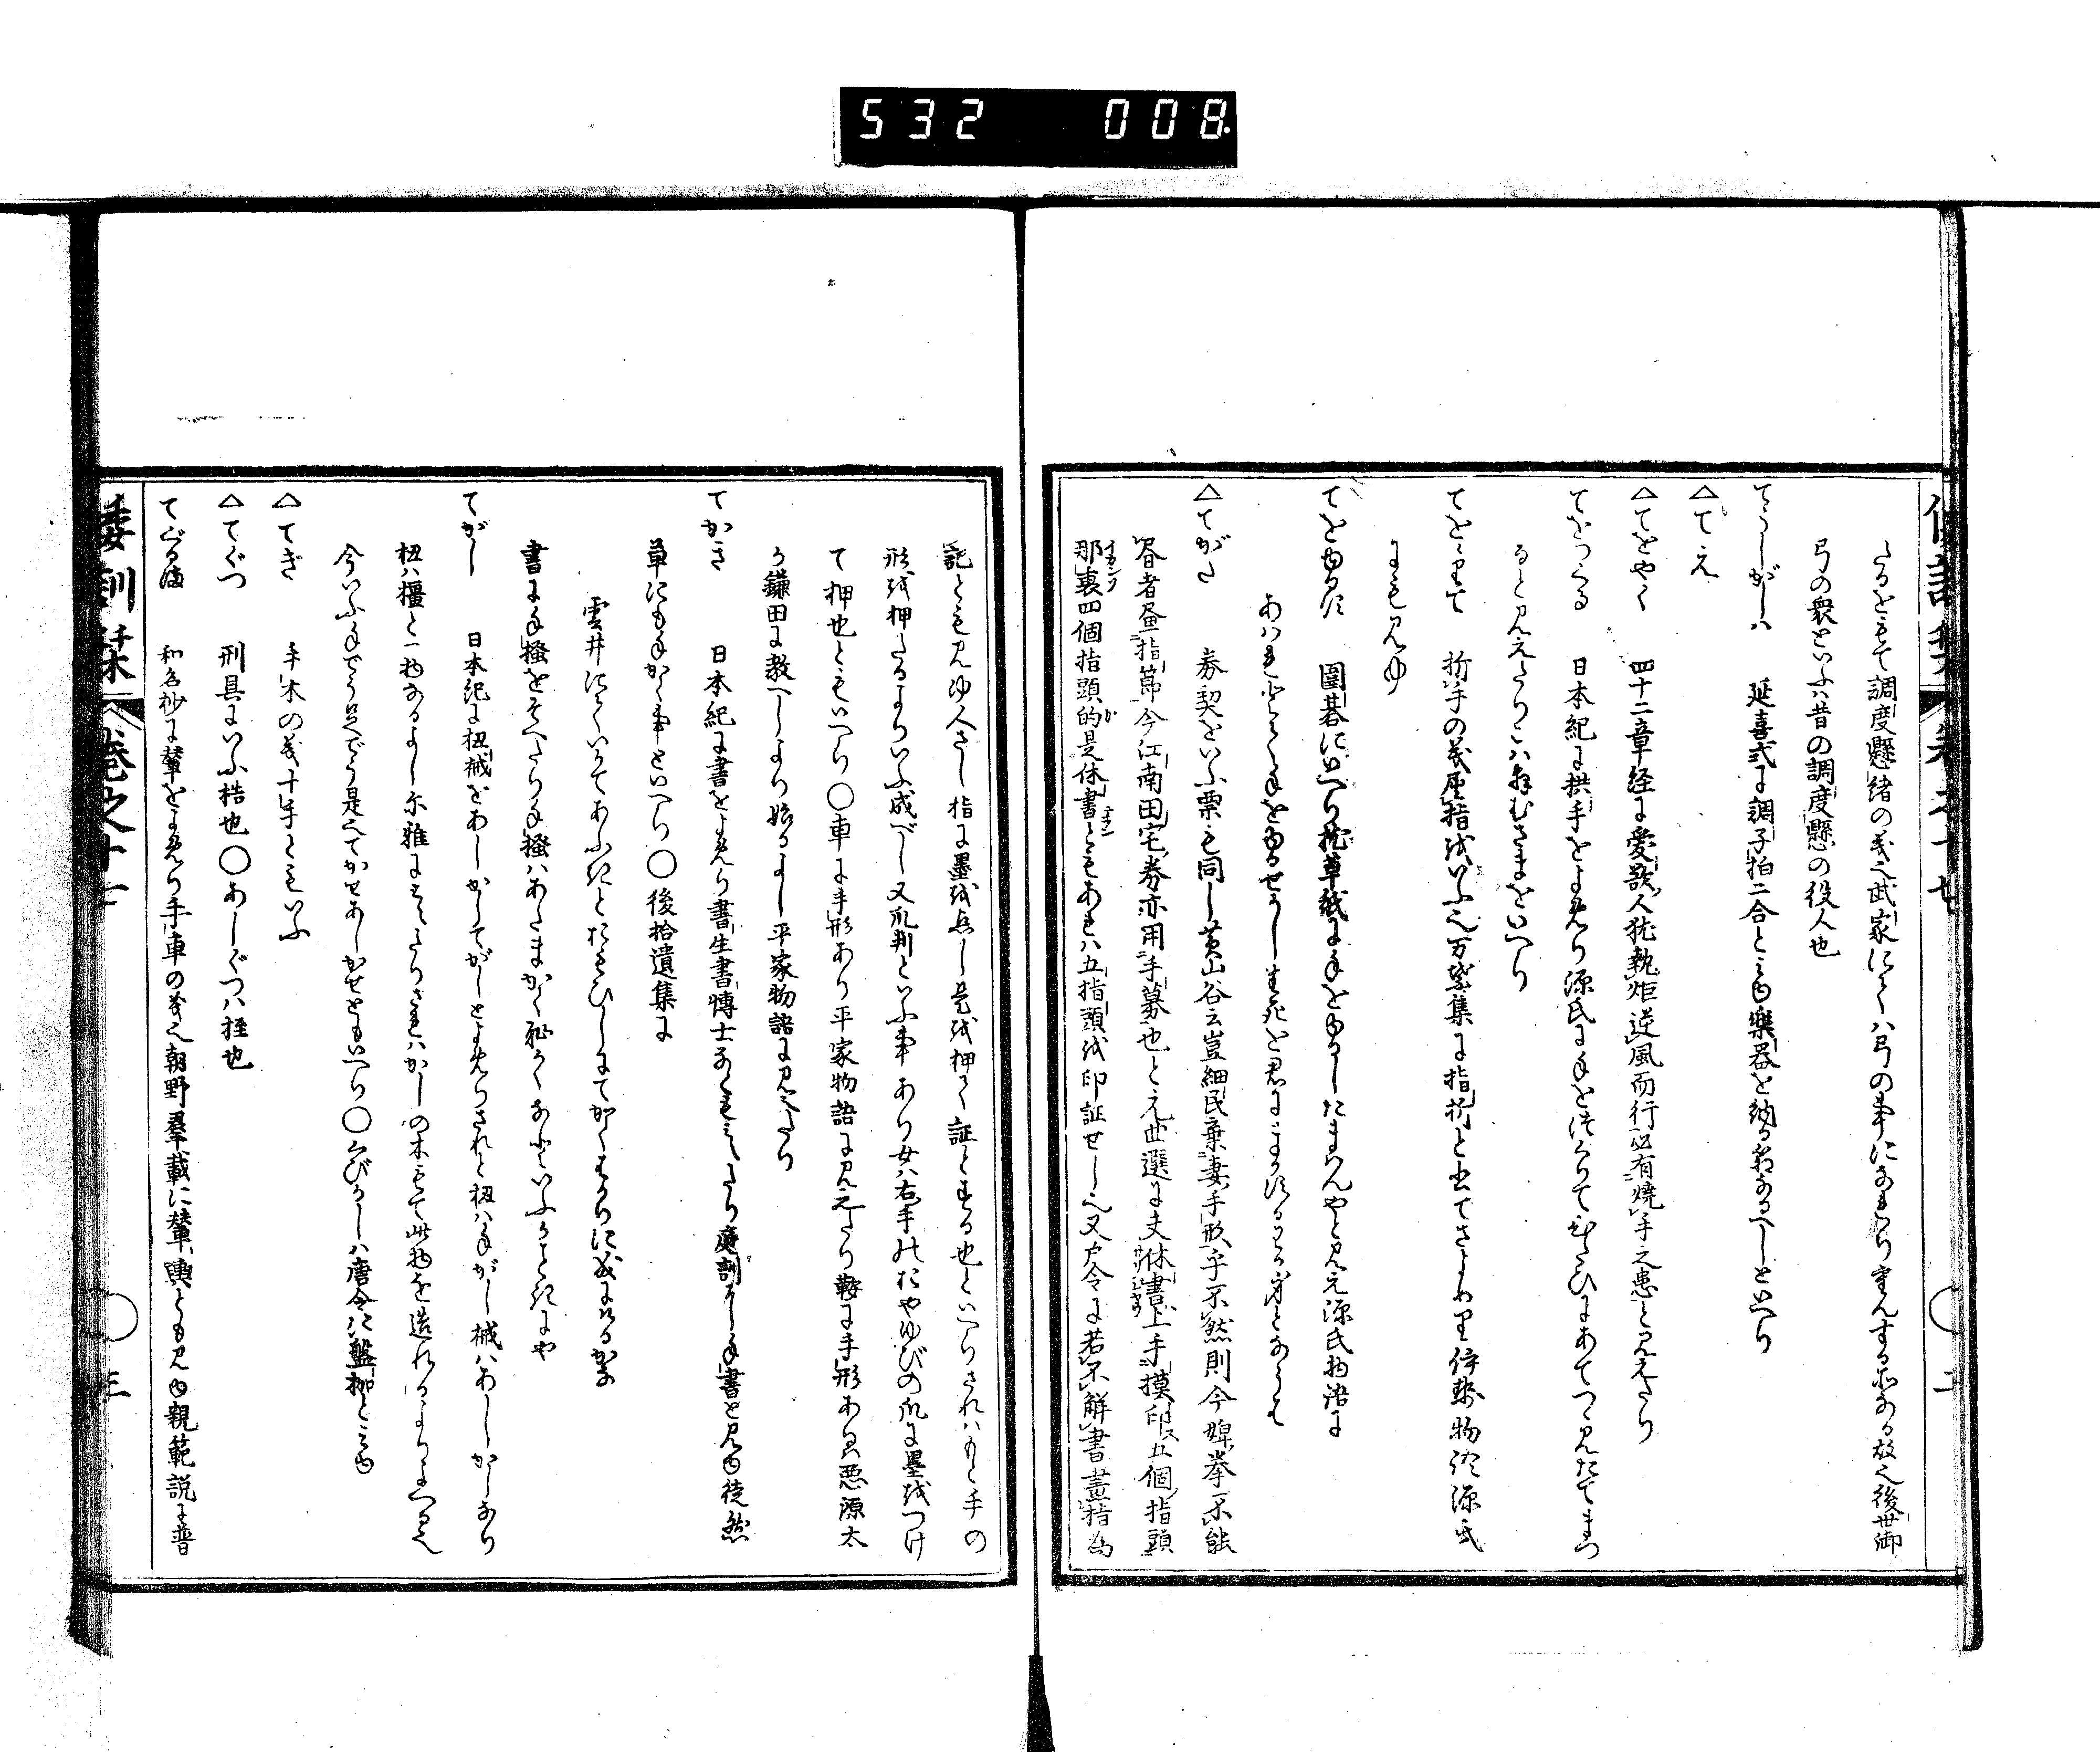 532 008
たるをもて調度懸緒の義也武家にてハ弓の事になれり重んする所なる故也後世御
弓の衆といふハ昔の調度懸の役人也
てうしがハ 延喜式に調子拍二合とみゆ楽器を納る名なるへしといへり
△てえ
△てをやく 四十二章経に愛欲人猶執炬逆風而行必有焼手之患と見えたり
てをつくる 日本紀に拱手をよめり源氏に手をつくりてひたひにあてつゝ見たてまつ
ると見えたりこハ拝むさまをいへり
てををりて 折手の義屈指をいふ也万葉集に指折と出てさよめり伊勢物語源氏
にも見ゆ
てをゆるす 圍碁にいへり枕草紙に手をゆるしたまハんやと見え源氏物語に
△てがた 券契をいふ票も同し黄山谷云豈細民棄妻手形乎不然則今婢券不能
書者畫指節今江南田宅券亦用手摹也と元世選に夫休書上手摸印五個指頭
那裏四個指頭的是休書ともあれハ五指頭を印証せし也又戸令に若不解書畫指為
記とも見ゆ人さし指に墨を点し是を押して証とする也といへりされハもと手の
形を押たるよりいふ成べし又爪判といふ事あり女ハ右手のおやゆびの爪に墨をつけ
て押也ともいへり〇車に手形あり平家物語に見えたり鞍に手形あるハ悪源太
か鎌田に教へしより始るよし平家物語に見えたり
てかき 日本紀に書をよめり書生書博士なともみえたり庭訓に手書と見ゆ徒然
草にも手かく事といへり〇後拾遺集に
雲井にていかてあふきとおもひしにてかくはかりに成にけるかな
書に手掻をそへたり手掻ハあたまかく恥かくなといふかことにや
てがし 日本紀に杻械をあしかしてがしとよめりされと杻ハ手がし械ハあしかしなり
杻ハ橿と一物なるよし尓雅にみえたりされハかしの木もて此物を造れるよりいへる也
今いふ手でう足でう是也てかせあしかせともいへり〇くびかしハ唐令に盤枷とみゆ
△てぎ 手木の義十手ともいふ
△てぐつ 刑具にいふ梏也〇あしぐつハ桎也
てぐるま 和名抄に輦をよめり手車の義也朝野羣載に輦輿とも見ゆ親範説に普
倭訓栞 巻之十七 〇 三